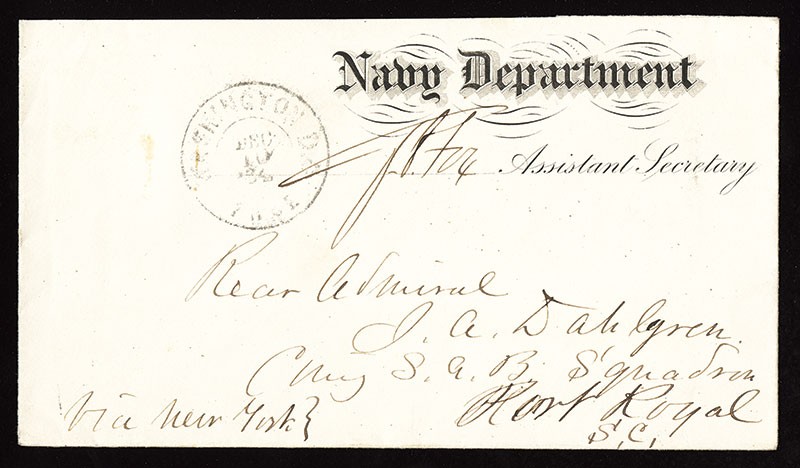 Navy Department
G. V. Fox Assistant Secretary
WASHINGTON D.C.
DEC
10
'64
FREE
Rear Admiral
J. A. Dahlgren.
Comg S. A. B. Squadron
Port Royal
S.C.
Via New York}